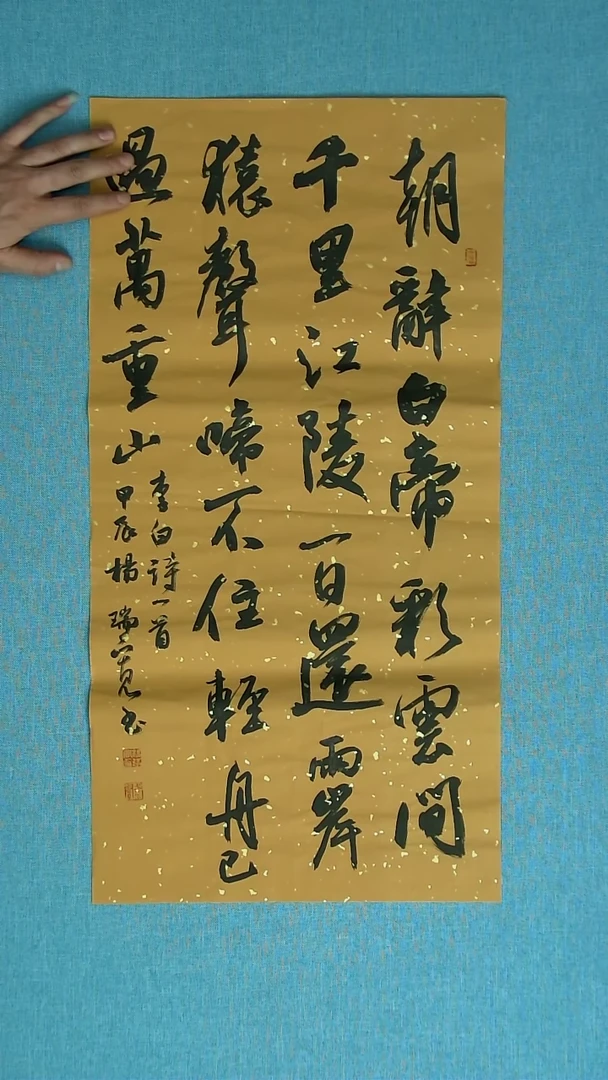 朝辭白帝彩雲間
千里江陵一日還兩岸
猿聲啼不住輕舟已
過萬重山
李白詩一首
甲辰楊瑞寬书